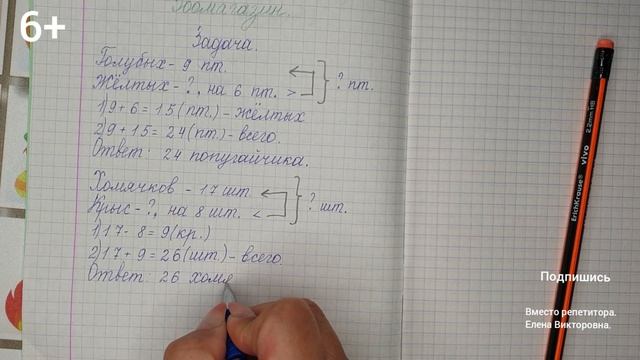 6+
Зоомагазин.
Задача.
Голубых - 9 пт.
Жёлтых - ?, на 6 пт. >
? пт.
1) 9 + 6 = 15 (пт.) - жёлтых
2) 9 + 15 = 24 (пт.) - всего.
Ответ: 24 попугайчика.
Хомячков - 17 шт.
Крыс - ?, на 8 шт. <
? шт.
1) 17 - 8 = 9 (кр.)
2) 17 + 9 = 26 (шт.) - всего.
Ответ: 26 хомя
ErichKrause® vivo 2.2mm HB
Подпишись
Вместо репетитора.
Елена Викторовна.